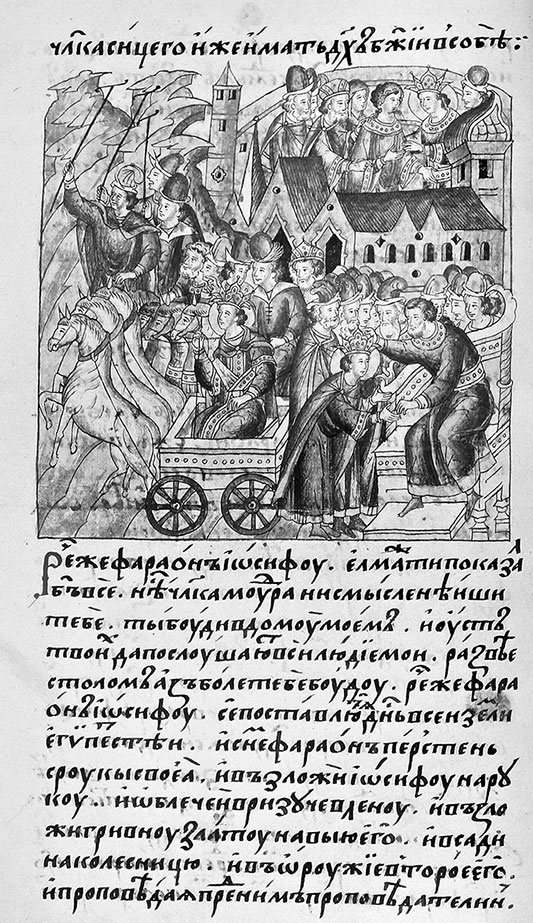 чл҃ка сицего иже имать дх҃ъ бж҃ии в собѣ :
Рⷱ҇е же фараонъ іѡсифоу . елма ти показа
бг҃ъ все . нѣ чл҃ка моудра ни смысленѣиши
тебе . ты боуди в домоу моемъ . и оустъ
твоиⷯ да послоушаюⷮ вси людїе мои . развѣ
столомъ азъ боле тебе боудоу . рⷱ҇е же фара
ѡнъ іѡсифоу . се поставлю тѧ днⷭ҇ь все и земли
егѵпестѣи . и снемъ фараѡнъ перстень
с роукы своеѧ . и възложи іѡсифоу на ру
коу . и ѡблече и в ризу чевленоу . и възло
жи гривноу златоу на выю его . и всади
на колесницю . и въ ѡроужїе второе его .
и проповѣдаѧ преⷣ ним проповѣдатели .